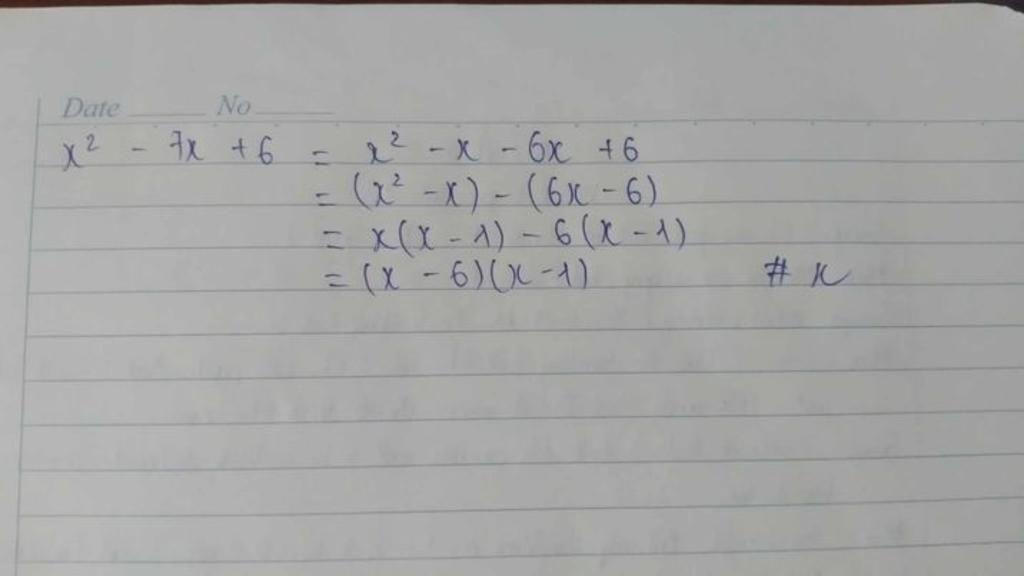 Date No
x² - 7x + 6 = x² - x - 6x + 6
= (x² - x) - (6x - 6)
= x(x - 1) - 6(x - 1)
= (x - 6)(x - 1) # x